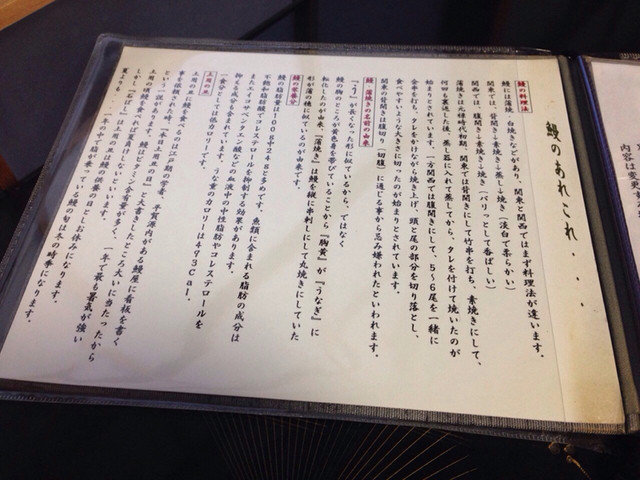 鰻のあれこれ．．．
鰻の料理法
鰻には蒲焼・白焼きなどがあり、関東と関西ではまず料理法が違います。
関東では、背開き↓素焼き↓蒸し↓焼き（淡白で柔らかい）
関西では、腹開き↓素焼き↓焼き（パリっとして香ばしい）
蒲焼きは元禄時代初期、関東では背開きにして竹串を打ち、素焼きにして、
何回も裏返した後、蒸し器に入れて蒸してから、タレを付けて焼いたのが
始まりとされています。一方関西では腹開きにして、5〜6尾を一緒に
金串を打ち、タレをかけながら焼き上げ、頭と尾の部分を切り落とし、
食べやすいような大きさに切ったのが始まりとされています。
関東の背開きは腹切り（切腹）に通じる事から忌み嫌われたといわれます。
鰻・蒲焼きの名前の由来
「う」が長くなった形に似ているから、ではなく
鰻の胸のところが黄色身を帯びていることから『胸黄』が『うなぎ』に
転化したのが由来。『蒲焼き』は鰻を縦に串刺しにして丸焼きにしていた
形が蒲の穂に似ているのが由来です。
鰻の栄養分
鰻の脂肪量は100g中24gと多めです。魚類に含まれる脂肪の成分は
不飽和脂肪酸でコレステロールを抑制する効果があります。
またエイコサペンタエン酸などの血液中の中性脂肪やコレステロールを
抑える成分も含まれています。うな重のカロリーは473Cal、
一食分としては低カロリーです。
土用の丑
土用の丑に鰻を食べるのは江戸期の学者、平賀源内がある鰻屋に看板を書く
事を依頼された時、『本日土用丑の日』と大書きしたところ大いに当たったから
という一説があります。鰻はビタミン含有量が多く、一年で最も暑気が強い
土用の頃鰻を食べれば夏負けしないといいます。
しかし『石ばし』は土用の丑の日は鰻の供養の日としお休みになります。
夏よりも．．．一年の中で一番脂が乗っている鰻の旬は冬の時季になります。
内容は変更